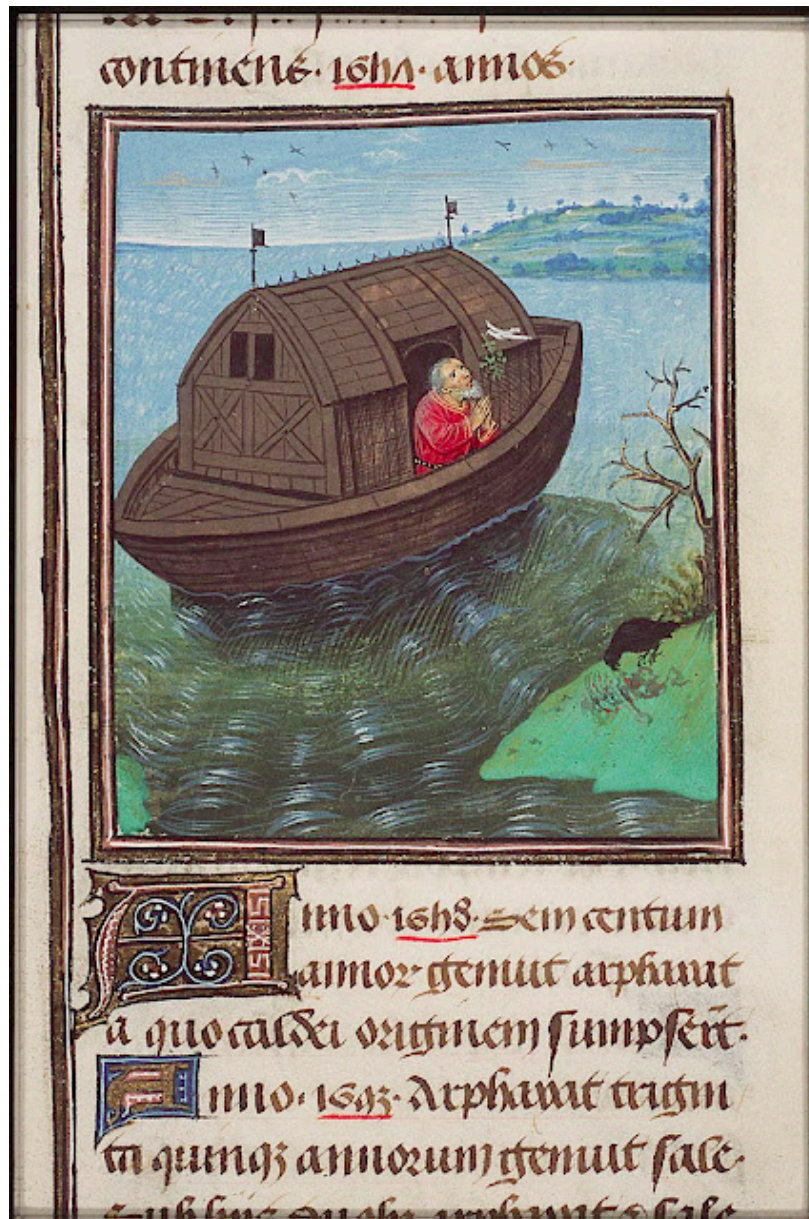 continens · 1657 · annos ·
Anno · 1658 · Sem centum
annoꝝ genuit arphaxat
a quo caldei originem sumpserūt.
Anno · 1693 · Arphaxat trigin
ta quinqꝫ annorum genuit sale.